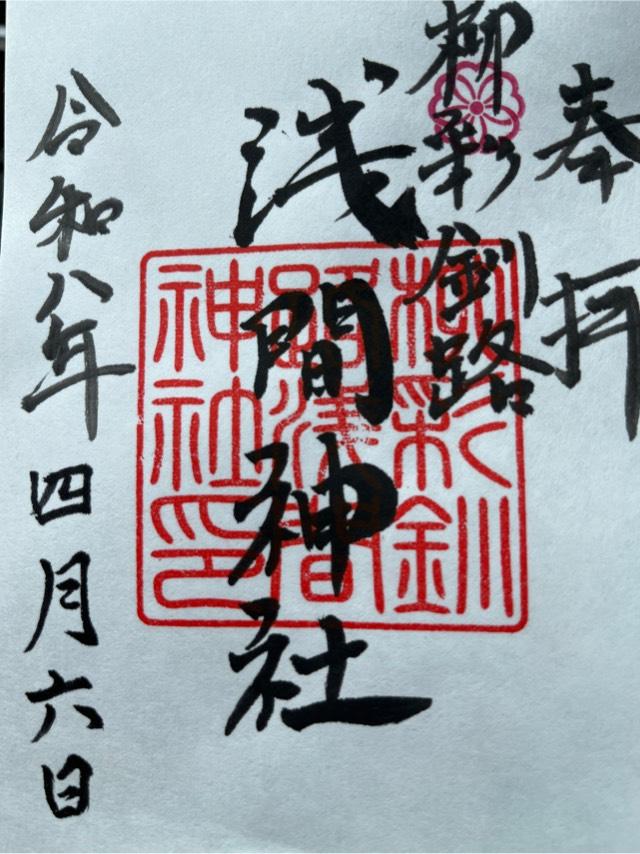 奉拝
柳彩釧路
浅間神社
令和八年四月六日
柳彩釧
路浅間
神社印